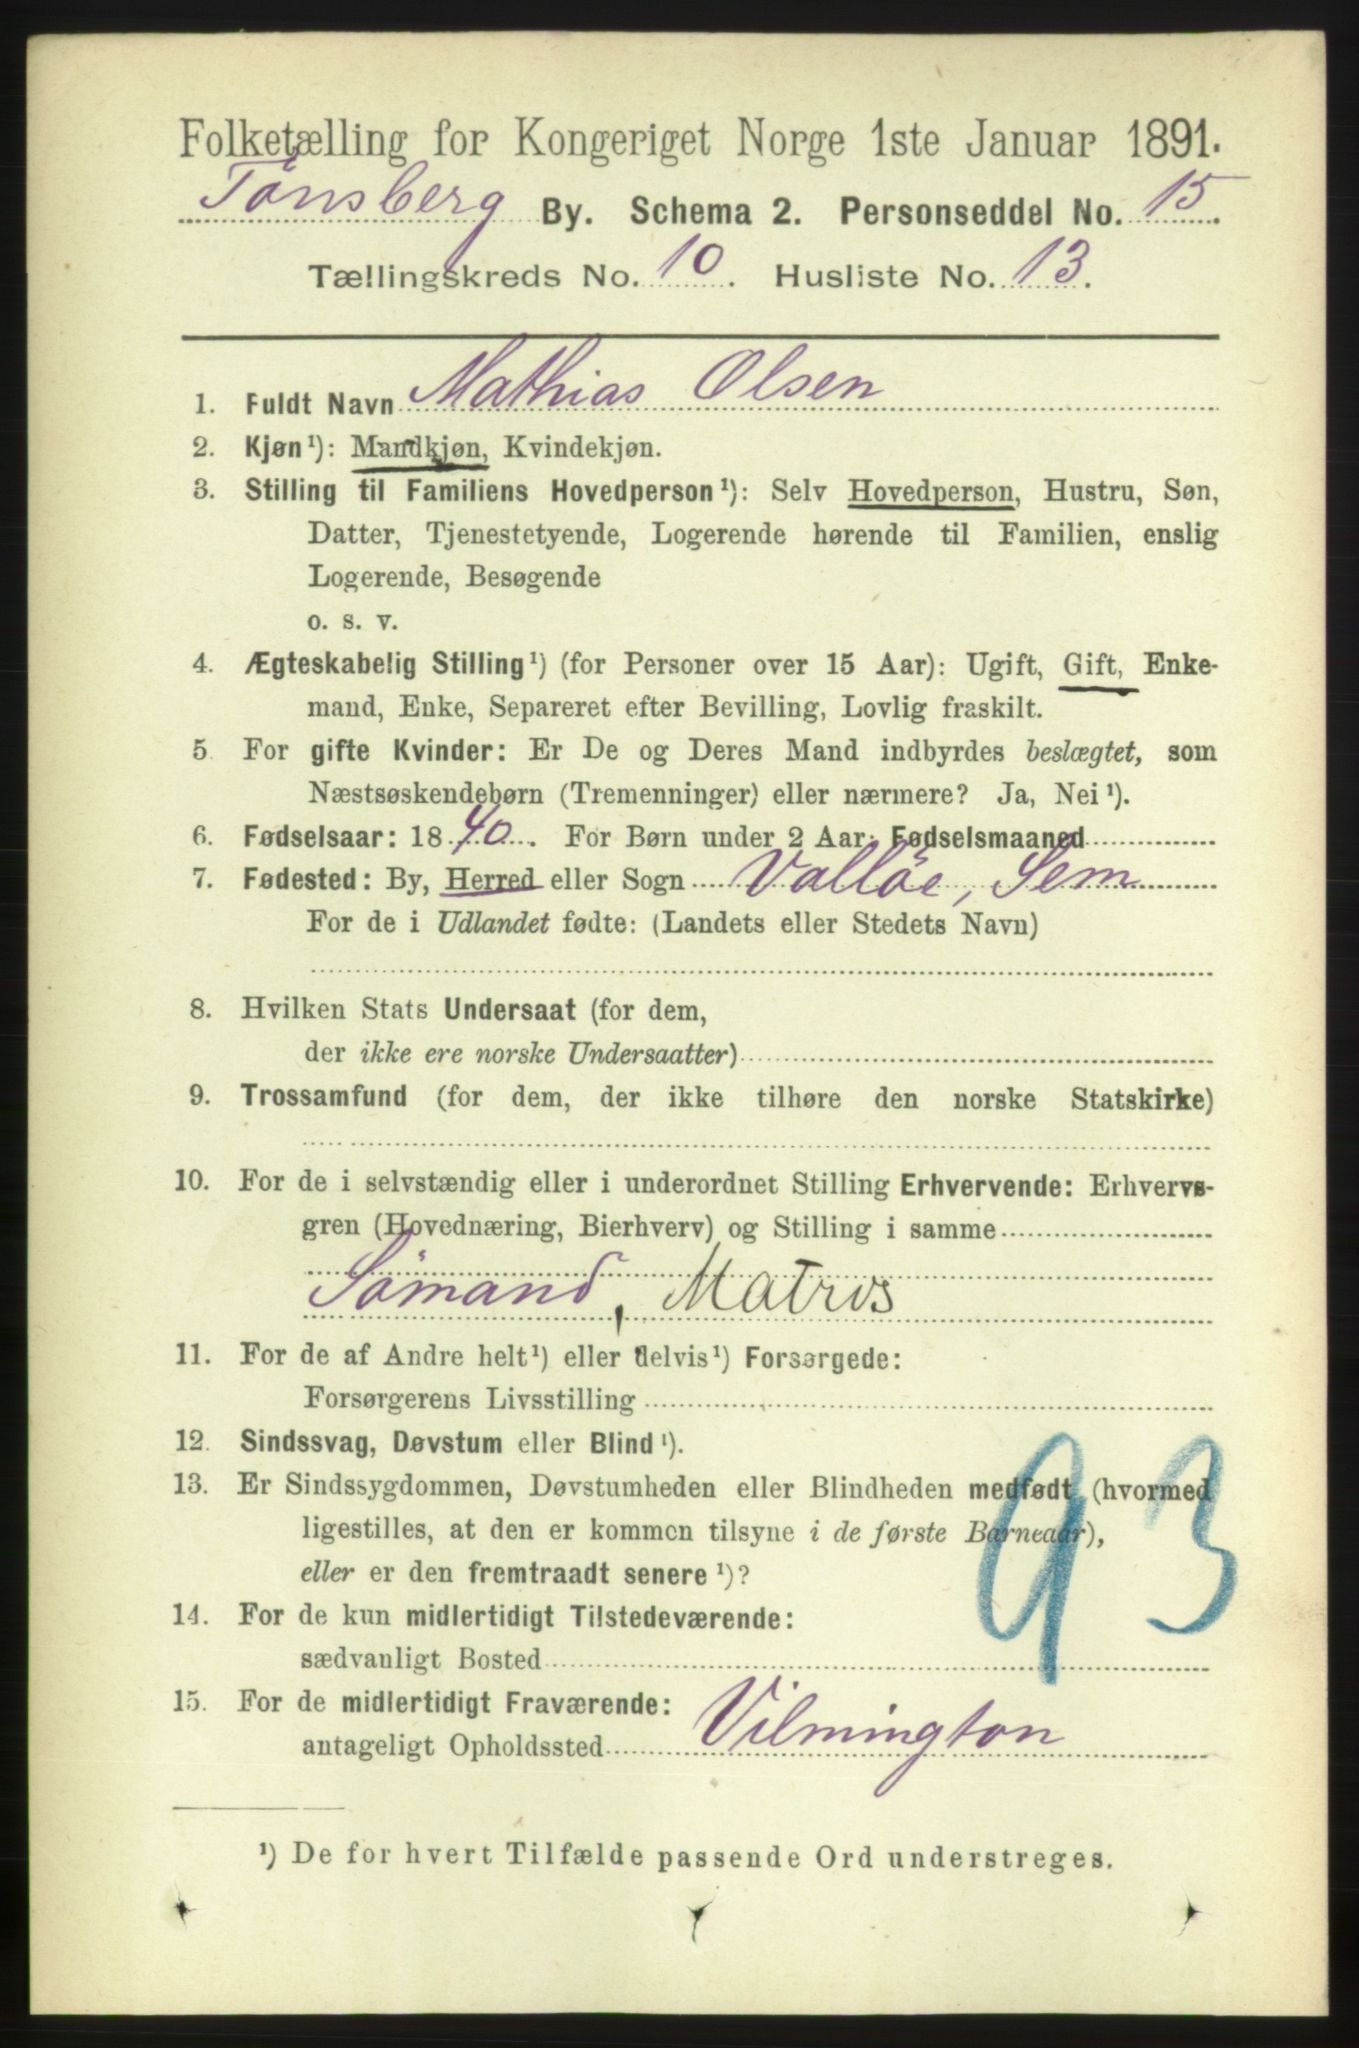 Folketælling for Kongeriget Norge 1ste Januar 1891.
Tønsberg By. Schema 2. Personseddel No. 15.
Tællingskreds No. 10. Husliste No. 13.
1. Fuldt Navn Mathias Olsen
2. Kjøn¹): Mandkjøn, Kvindekjøn.
3. Stilling til Familiens Hovedperson¹): Selv Hovedperson, Hustru, Søn,
Datter, Tjenestetyende, Logerende hørende til Familien, enslig
Logerende, Besøgende
o. s. v.
4. Ægteskabelig Stilling¹) (for Personer over 15 Aar): Ugift, Gift, Enke-
mand, Enke, Separeret efter Bevilling, Lovlig fraskilt.
5. For gifte Kvinder: Er De og Deres Mand indbyrdes beslægtet, som
Næstsøskendebørn (Tremenninger) eller nærmere? Ja, Nei¹).
6. Fødselsaar: 1840. For Børn under 2 Aar: Fødselsmaaned
7. Fødested: By, Herred eller Sogn Valløe, Sem
For de i Udlandet fødte: (Landets eller Stedets Navn)
8. Hvilken Stats Undersaat (for dem,
der ikke ere norske Undersaatter)
9. Trossamfund (for dem, der ikke tilhøre den norske Statskirke)
10. For de i selvstændig eller i underordnet Stilling Erhvervende: Erhvervs-
gren (Hovednæring, Bierhverv) og Stilling i samme
Sømand, Matros
11. For de af Andre helt¹) eller delvis¹) Forsørgede:
Forsørgerens Livsstilling
12. Sindssvag, Døvstum eller Blind¹).
13. Er Sindssygdommen, Døvstumheden eller Blindheden medfødt (hvormed
ligestilles, at den er kommen tilsyne i de første Barneaar),
eller er den fremtraadt senere¹)?
93
14. For de kun midlertidigt Tilstedeværende:
sædvanligt Bosted
15. For de midlertidigt Fraværende:
antageligt Opholdssted Vilmington
¹) De for hvert Tilfælde passende Ord understreges.